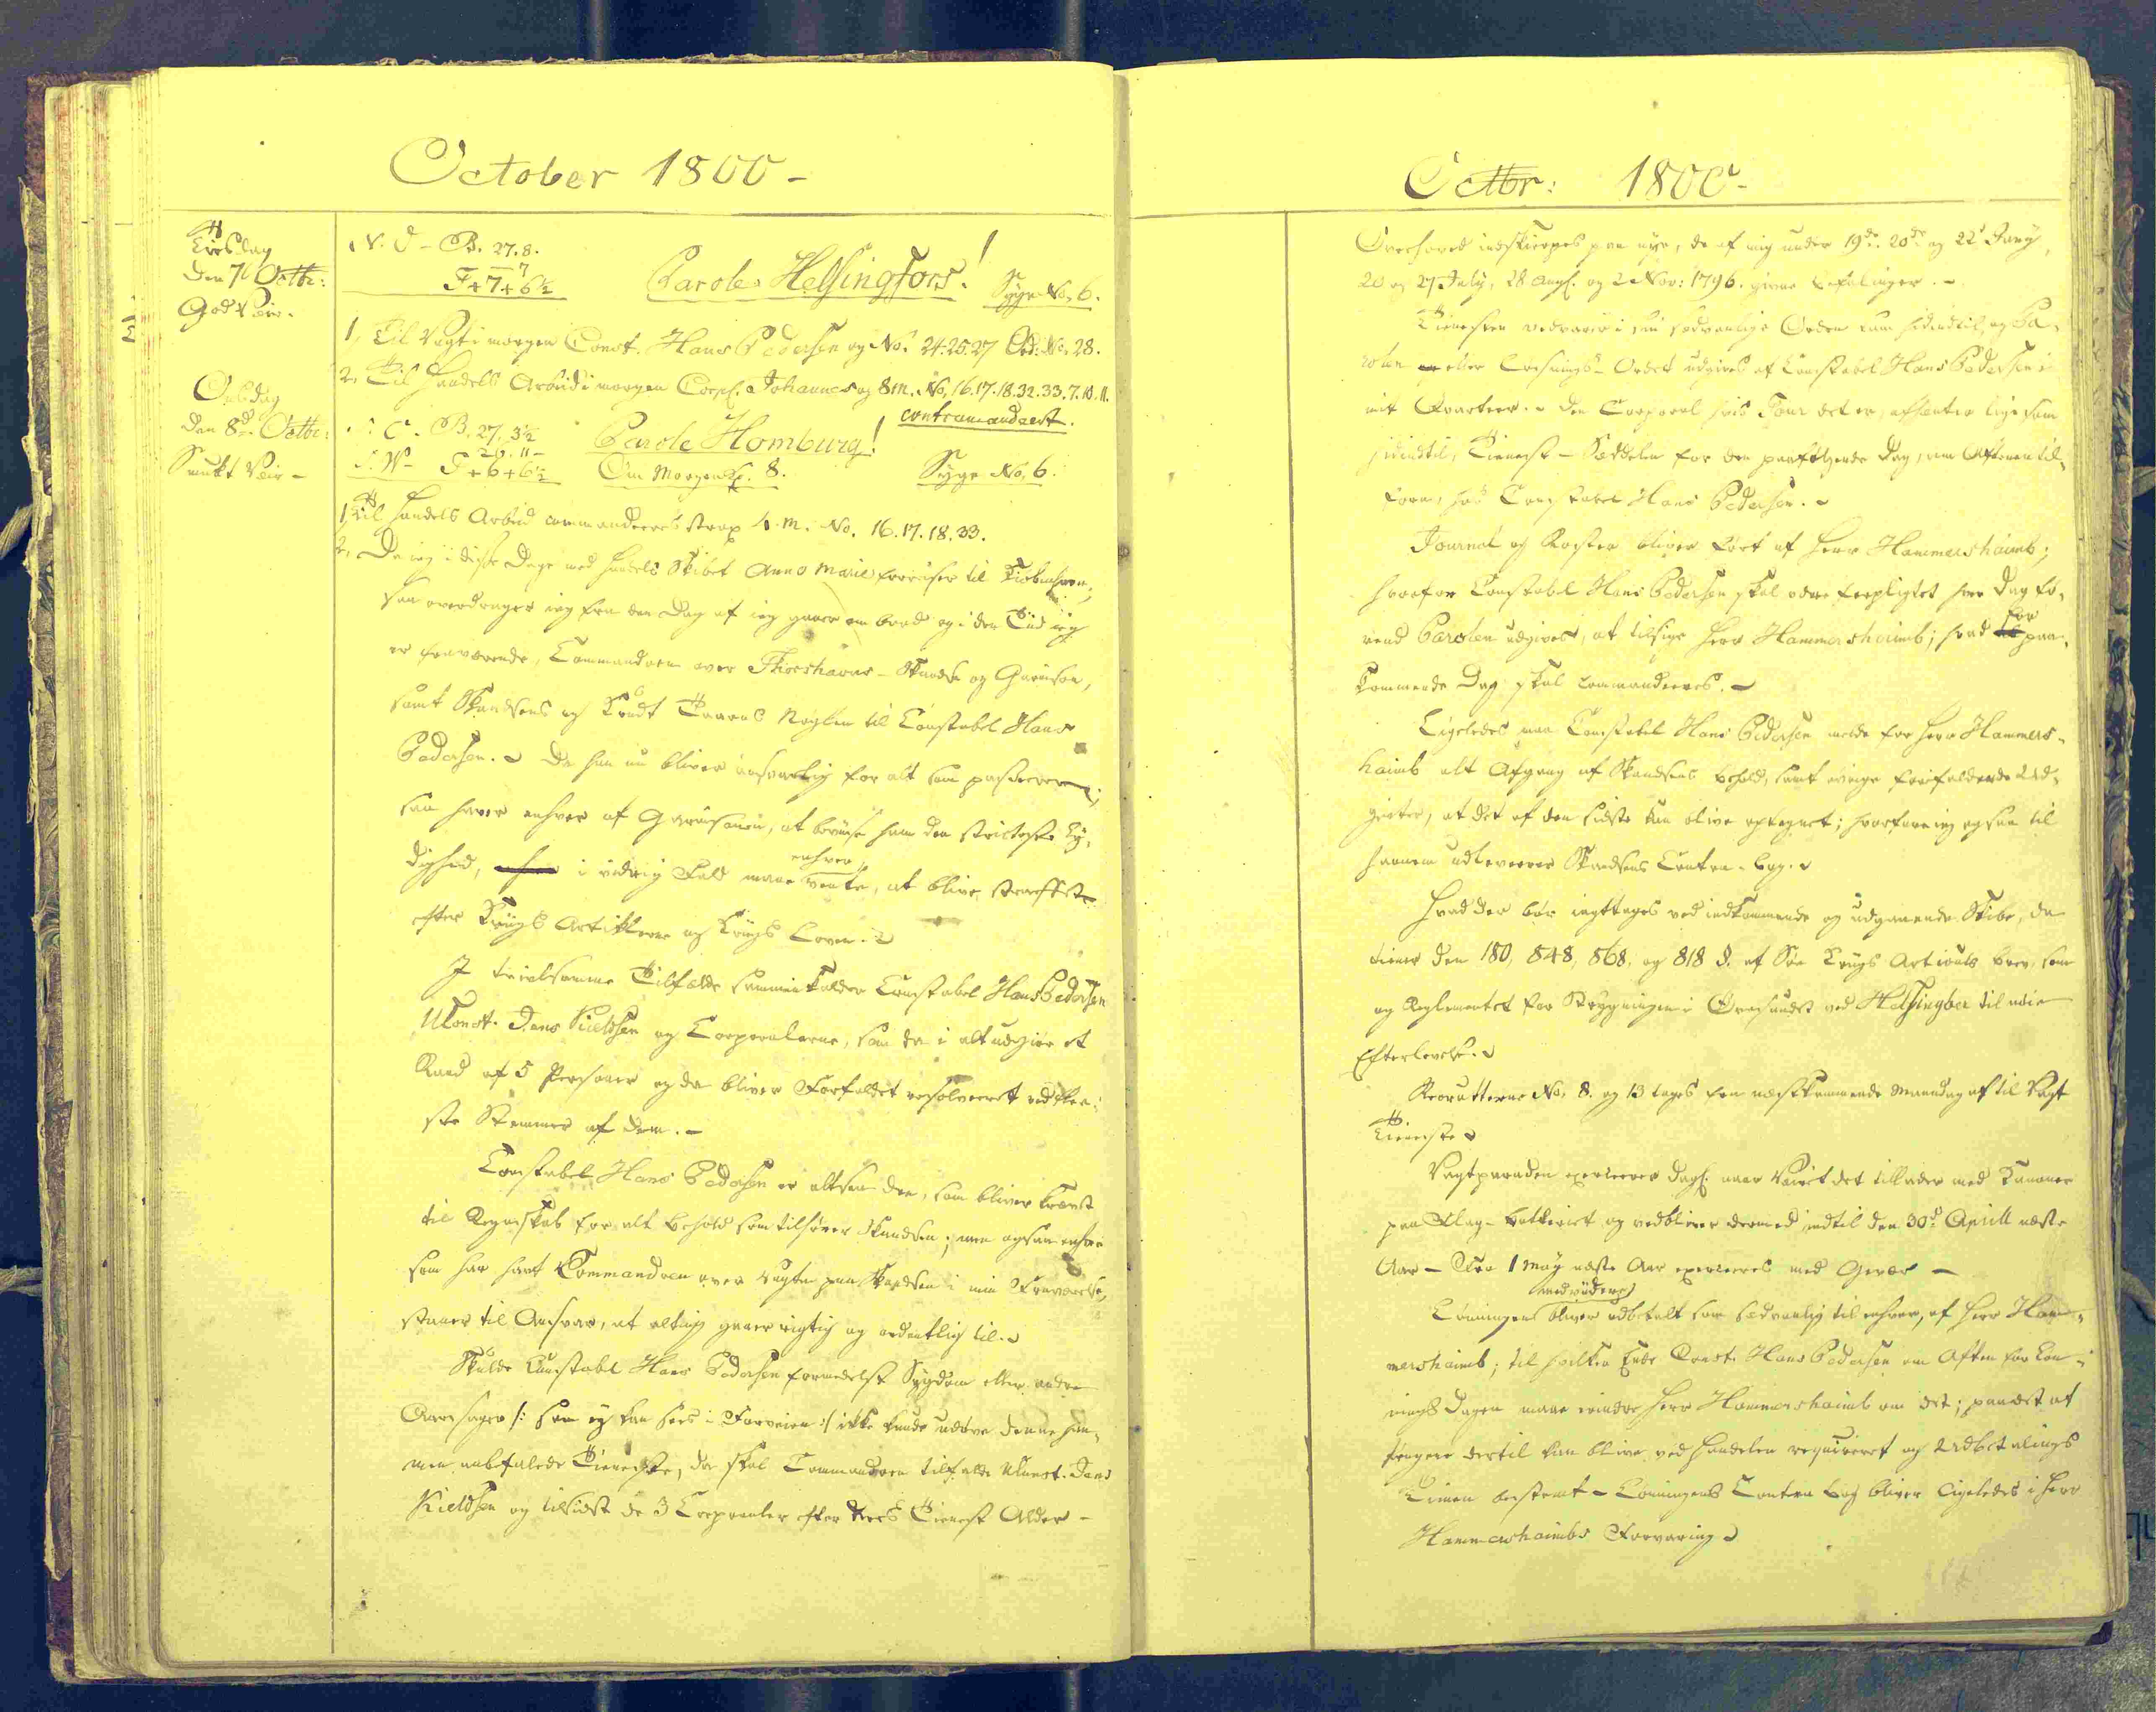 October 1800 -
Tirsdag
den 7de Octbr:
God Veir.
N. O - B. 27. 8.
7
F + 7 + 6½
Parole Helsingfors!
Syge No, 6.
1, Til Vagt i morgen Const. Hans Pedersen og No. 24. 25. 27 Ord: No. 28.
2, Til Handels Arbeid i morgen Corpl. Johannes og 8 m. No, 16. 17. 18. 32. 33. 7. 10. 11.
contramandeert.
Onsdag
den 8de Octbr:
Smukt Veir -
B. 27. 3½
26. 11 -
S. W - F + 6 + 6½
Parole Homburg!
Om Morgen Kl. 8.
Syge No, 6.
1, Til Handels Arbeid commanderes strax 4. m. No. 16. 17. 18. 33.
2, Da jeg i disse Dage med Handels Skibet Anna Marie forreiser til Kiøbenhavn;
saa overdrager jeg fra den Dag af jeg gaaer om bord og i den Tiid jeg
er fraværende, Commandoen over Thorshavns - Skandse og Garnison,
samt Skandsens og Krudt Taarns Nøglen til Constabel Hans
Pedersen. Da han nu bliver ansvarlig for alt som passerer;
saa haver enhver af Garnisonen, at beviise ham den stricteste Ly¬
dighed, i vidrig Fald maae enhver vente, at blive straffet
efter Krigs Artiklerne og Krigs Loven.
I tvivlsomme Tilfælde sammenkalder Constabel Hans Pedersen
UConst. Jens Kieldsen og Corporalerne, som da i alt udgiør et
Raad af 5 Personer og da bliver Forfaldet resolveret ved flee¬
ste Stemmer af dem. -
Constabel Hans Pedersen er altsaa den, som bliver krævet
til Regnskab for alt Behold som tilhører Skandsen; men ogsaa enhver
som har havt Commandoen over Vagten paa Skandsen i min Fraværelse,
staaer til Ansvar, at alting gaaer rigtig og ordentlig til.
Skulde Constabel Hans Pedersen formedelst Sygdom eller andre
Aarsager /: som ej kan sees i Forveien :/ ikke kunde udøve denne ham
anbefalede Tieneste, da skal Commandoen tilfalde UConst. Jens
Kieldsen og tilsidst de 3 Corporaler efter deres Tieneste Alder -
Octbr: 1800 -
Overhoved indskierpes paa nye, de af mig under 19de. 20de og 22de Janv.,
20 og 27 July, 28 Aug. og 2 Nov: 1796. givne Befalinger. -
Tienesten vedvarer i sin sædvanlige Orden som hidindtil, og Pa¬
rolen eller Løsnings-Ordet udgives af Constabel Hans Pedersen i
mit Qvarteer. Den Corporal hvis Tour det er, afhenter lige som
hidindtil, Tieneste - Seddelen for den paafølgende Dag, om Aftenen til¬
forn, hos Constabel Hans Pedersen.
Journal og Roster bliver ført af Herr Hammershaimb;
hvorfor Constabel Hans Pedersen skal være forpligtet hver Dag fø¬
rend Parolen udgives, at tilsige Herr Hammershaimb; hvad for paa¬
kommende Dag skal commanderes. -
Ligeledes maa Constabel Hans Pedersen melde for Herr Hammers¬
haimb alt Afgang af Skandsens Behold, samt øvrige forefaldende Ud¬
givter, at det af den sidste kan blive optegnet; hvorfore jeg ogsaa til
hannem udleverer Skandsens Contra-Bog.
Hvad der bør iagttages ved indkommende og udgaaende Skibe, da
tiener den 180, 848, 868, og 818 §. af Søe Krigs Articuls Brev, som
og Reglementet for Strygningen i Øresundet ved Helsingøer til nøie
Efterlevelse.
Recrutterne No, 8. og 13 tages fra næstkommende Mandag af til Vagt
Tieneste
Vagtparaden exercerer dagl. naar Veiret det tillader med Kanoner
paa Flag-Batteriet og vedbliver dermed indtil den 30de Aprill næste
Aar - Fra 1 May næste Aar exerceres med Gevær -
Lønningen bliver udbetalt som sædvanlig til enhver, af Herr Ham¬
mershaimb; til hvilken Ende Const. Hans Pedersen om Aften for Løn¬
nings Dagen maae erindre Herr Hammershaimb om det; paa det at
Pengene dertil kan blive ved Handelen requireret og Udbetalings
Timen bestemt - Lønningens Contra Bog bliver ligeledes i Herr
Hammershaimbs Forvaring